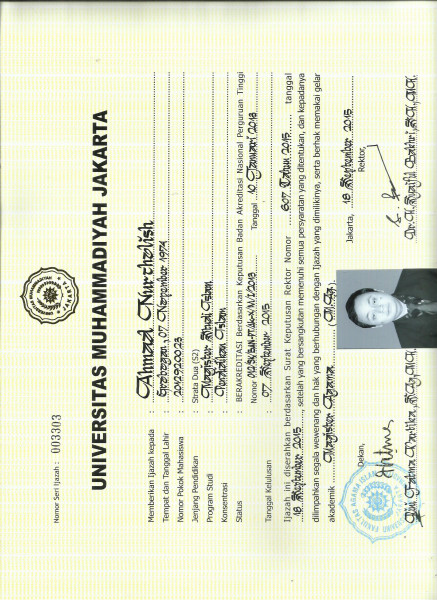 Nomor Seri Ijazah : 003303
UNIVERSITAS MUHAMMADIYAH JAKARTA
Memberikan Ijazah kepada : Ahmad Nurcholish
Tempat dan Tanggal Lahir : Grobogan, 07 Nopember 1974
Nomor Pokok Mahasiswa : 2012920023
Jenjang Pendidikan : Strata Dua (S2)
Program Studi : Magister Studi Islam
Konsentrasi : Pendidikan Islam
Status : BERAKREDITASI Berdasarkan Keputusan Badan Akreditasi Nasional Perguruan Tinggi
Nomor Tanggal 10 Januari 2013
Tanggal Kelulusan : 07 September 2015
Ijazah ini diserahkan berdasarkan Surat Keputusan Rektor Nomor 607 Tahun 2015 tanggal
18 September 2015, setelah yang bersangkutan memenuhi semua persyaratan yang ditentukan, dan kepadanya
dilimpahkan segala wewenang dan hak yang berhubungan dengan Ijazah yang dimilikinya, serta berhak memakai gelar
akademik Magister Agama (M.Ag)
Jakarta, 18 September 2015
Dekan,
Rektor,
Dr. H. Syaiful Bakhri, SH., MH.